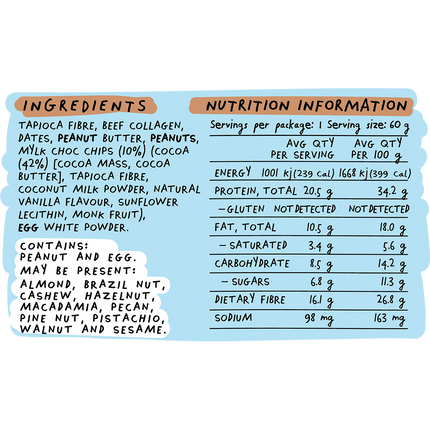 INGREDIENTS
TAPIOCA FIBRE, BEEF COLLAGEN,
DATES, PEANUT BUTTER, PEANUTS,
MYLK CHOC CHIPS (10%) (COCOA
(42%) [COCOA MASS, COCOA
BUTTER], TAPIOCA FIBRE,
COCONUT MILK POWDER, NATURAL
VANILLA FLAVOUR, SUNFLOWER
LECITHIN, MONK FRUIT),
EGG WHITE POWDER.
CONTAINS:
PEANUT AND EGG.
MAY BE PRESENT:
ALMOND, BRAZIL NUT,
CASHEW, HAZELNUT,
MACADAMIA, PECAN,
PINE NUT, PISTACHIO,
WALNUT AND SESAME.
NUTRITION INFORMATION
Servings per package: 1 Serving size: 60 g
AVG QTY PER SERVING AVG QTY PER 100 g
ENERGY 1001 kj(239 cal) 1668 kj(399 cal)
PROTEIN, TOTAL 20.5 g 34.2 g
-GLUTEN NOT DETECTED NOT DETECTED
FAT, TOTAL 10.5 g 18.0 g
- SATURATED 3.4 g 5.6 g
CARBOHYDRATE 8.5 g 14.2 g
- SUGARS 6.8 g 11.3 g
DIETARY FIBRE 16.1 g 26.8 g
SODIUM 98 mg 163 mg